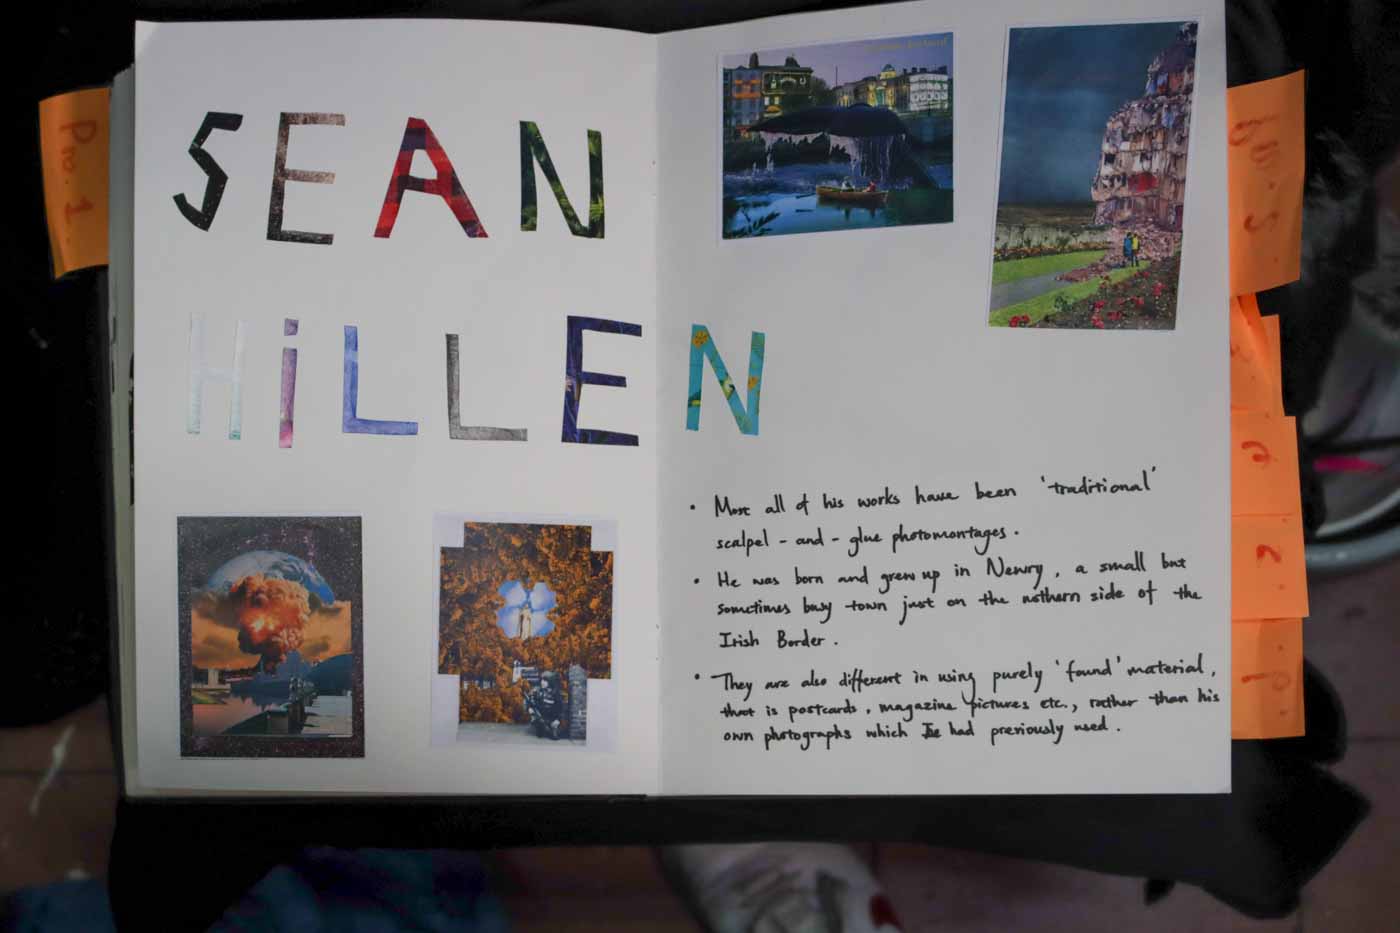 SEAN
HiLLEN
Pro. 1.
• Most all of his works have been 'traditional'
scalpel - and - glue photomontages.
• He was born and grew up in Newry, a small but
sometimes busy town just on the nothern side of the
Irish Border.
• They are also different in using purely 'found' material,
that is postcards, magazine pictures etc., rather than his
own photographs which he had previously used.